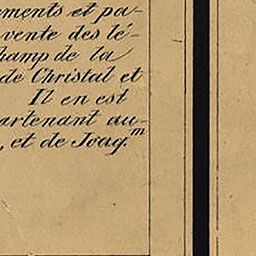 ements et pa-
vente des lé-
hamp de la
de Christal et
Il en est
artenant au-
, et de Joaq.m